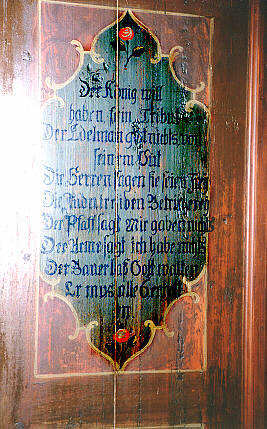 Der König will
haben sein Tribut
Der Edelman g nichts von
seinem Gut
Die Herren sagen sie seien frey
Die Juden treiben Betrügerey
Der Pfaff sagt Mir gaben nichts
Der Arme sagt ich habe nichts
Der Bauer last Gott walten
Er mus alle